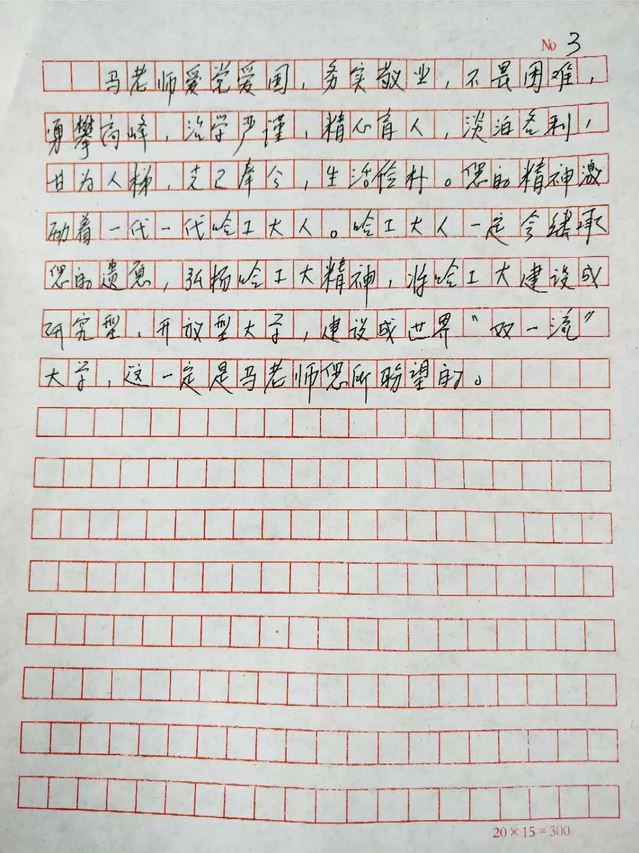 No 3
马老师爱党爱国，务实敬业，不畏困难，
勇攀高峰，治学严谨，精心育人，淡泊名利，
甘为人梯，克己奉公，生活俭朴。您的精神激
励着一代一代哈工大人。哈工大人一定会继承
您的遗愿，弘扬哈工大精神，将哈工大建设成
研究型，开放型大学，建设成世界“双一流”
大学，这一定是马老师您所盼望的。
20×15=300